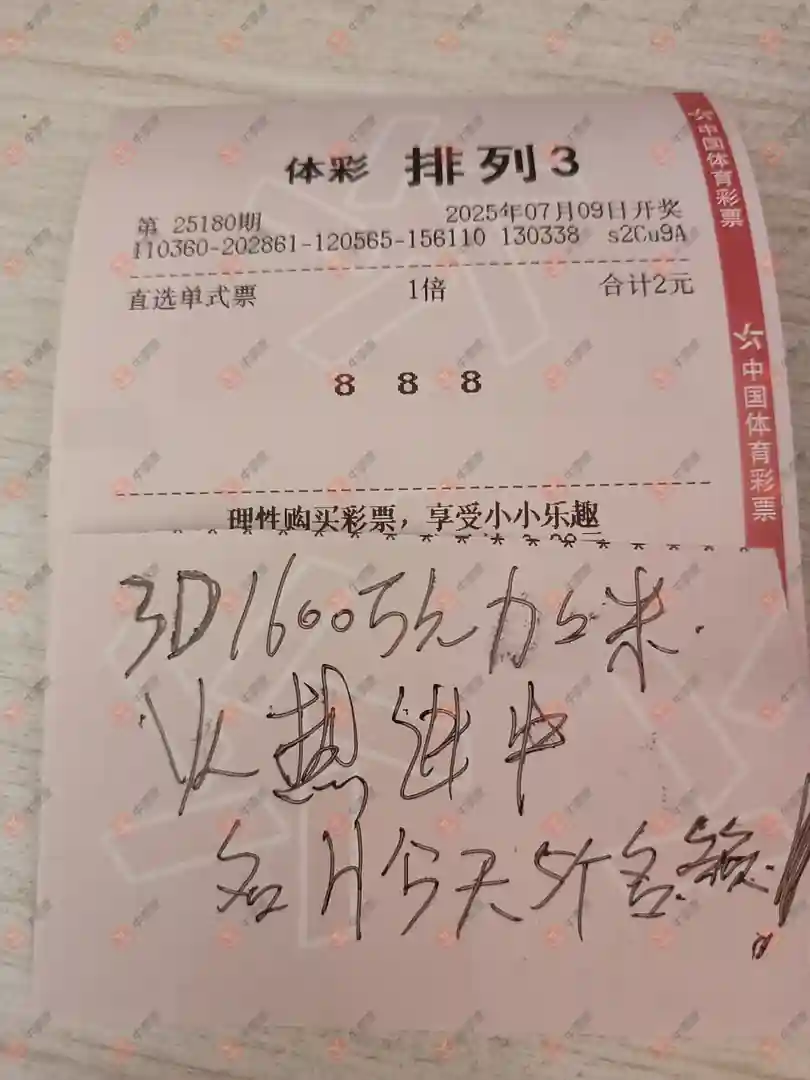 体彩 排列3
第 25180期 2025年07月09日开奖
110360-202861-120565-156110 130338 s2Cu9A
直选单式票 1倍 合计2元
8 8 8
理性购买彩票，享受小小乐趣
3D1600万元
火热进中
名片今天5个名额!
中国体育彩票
中国体育彩票